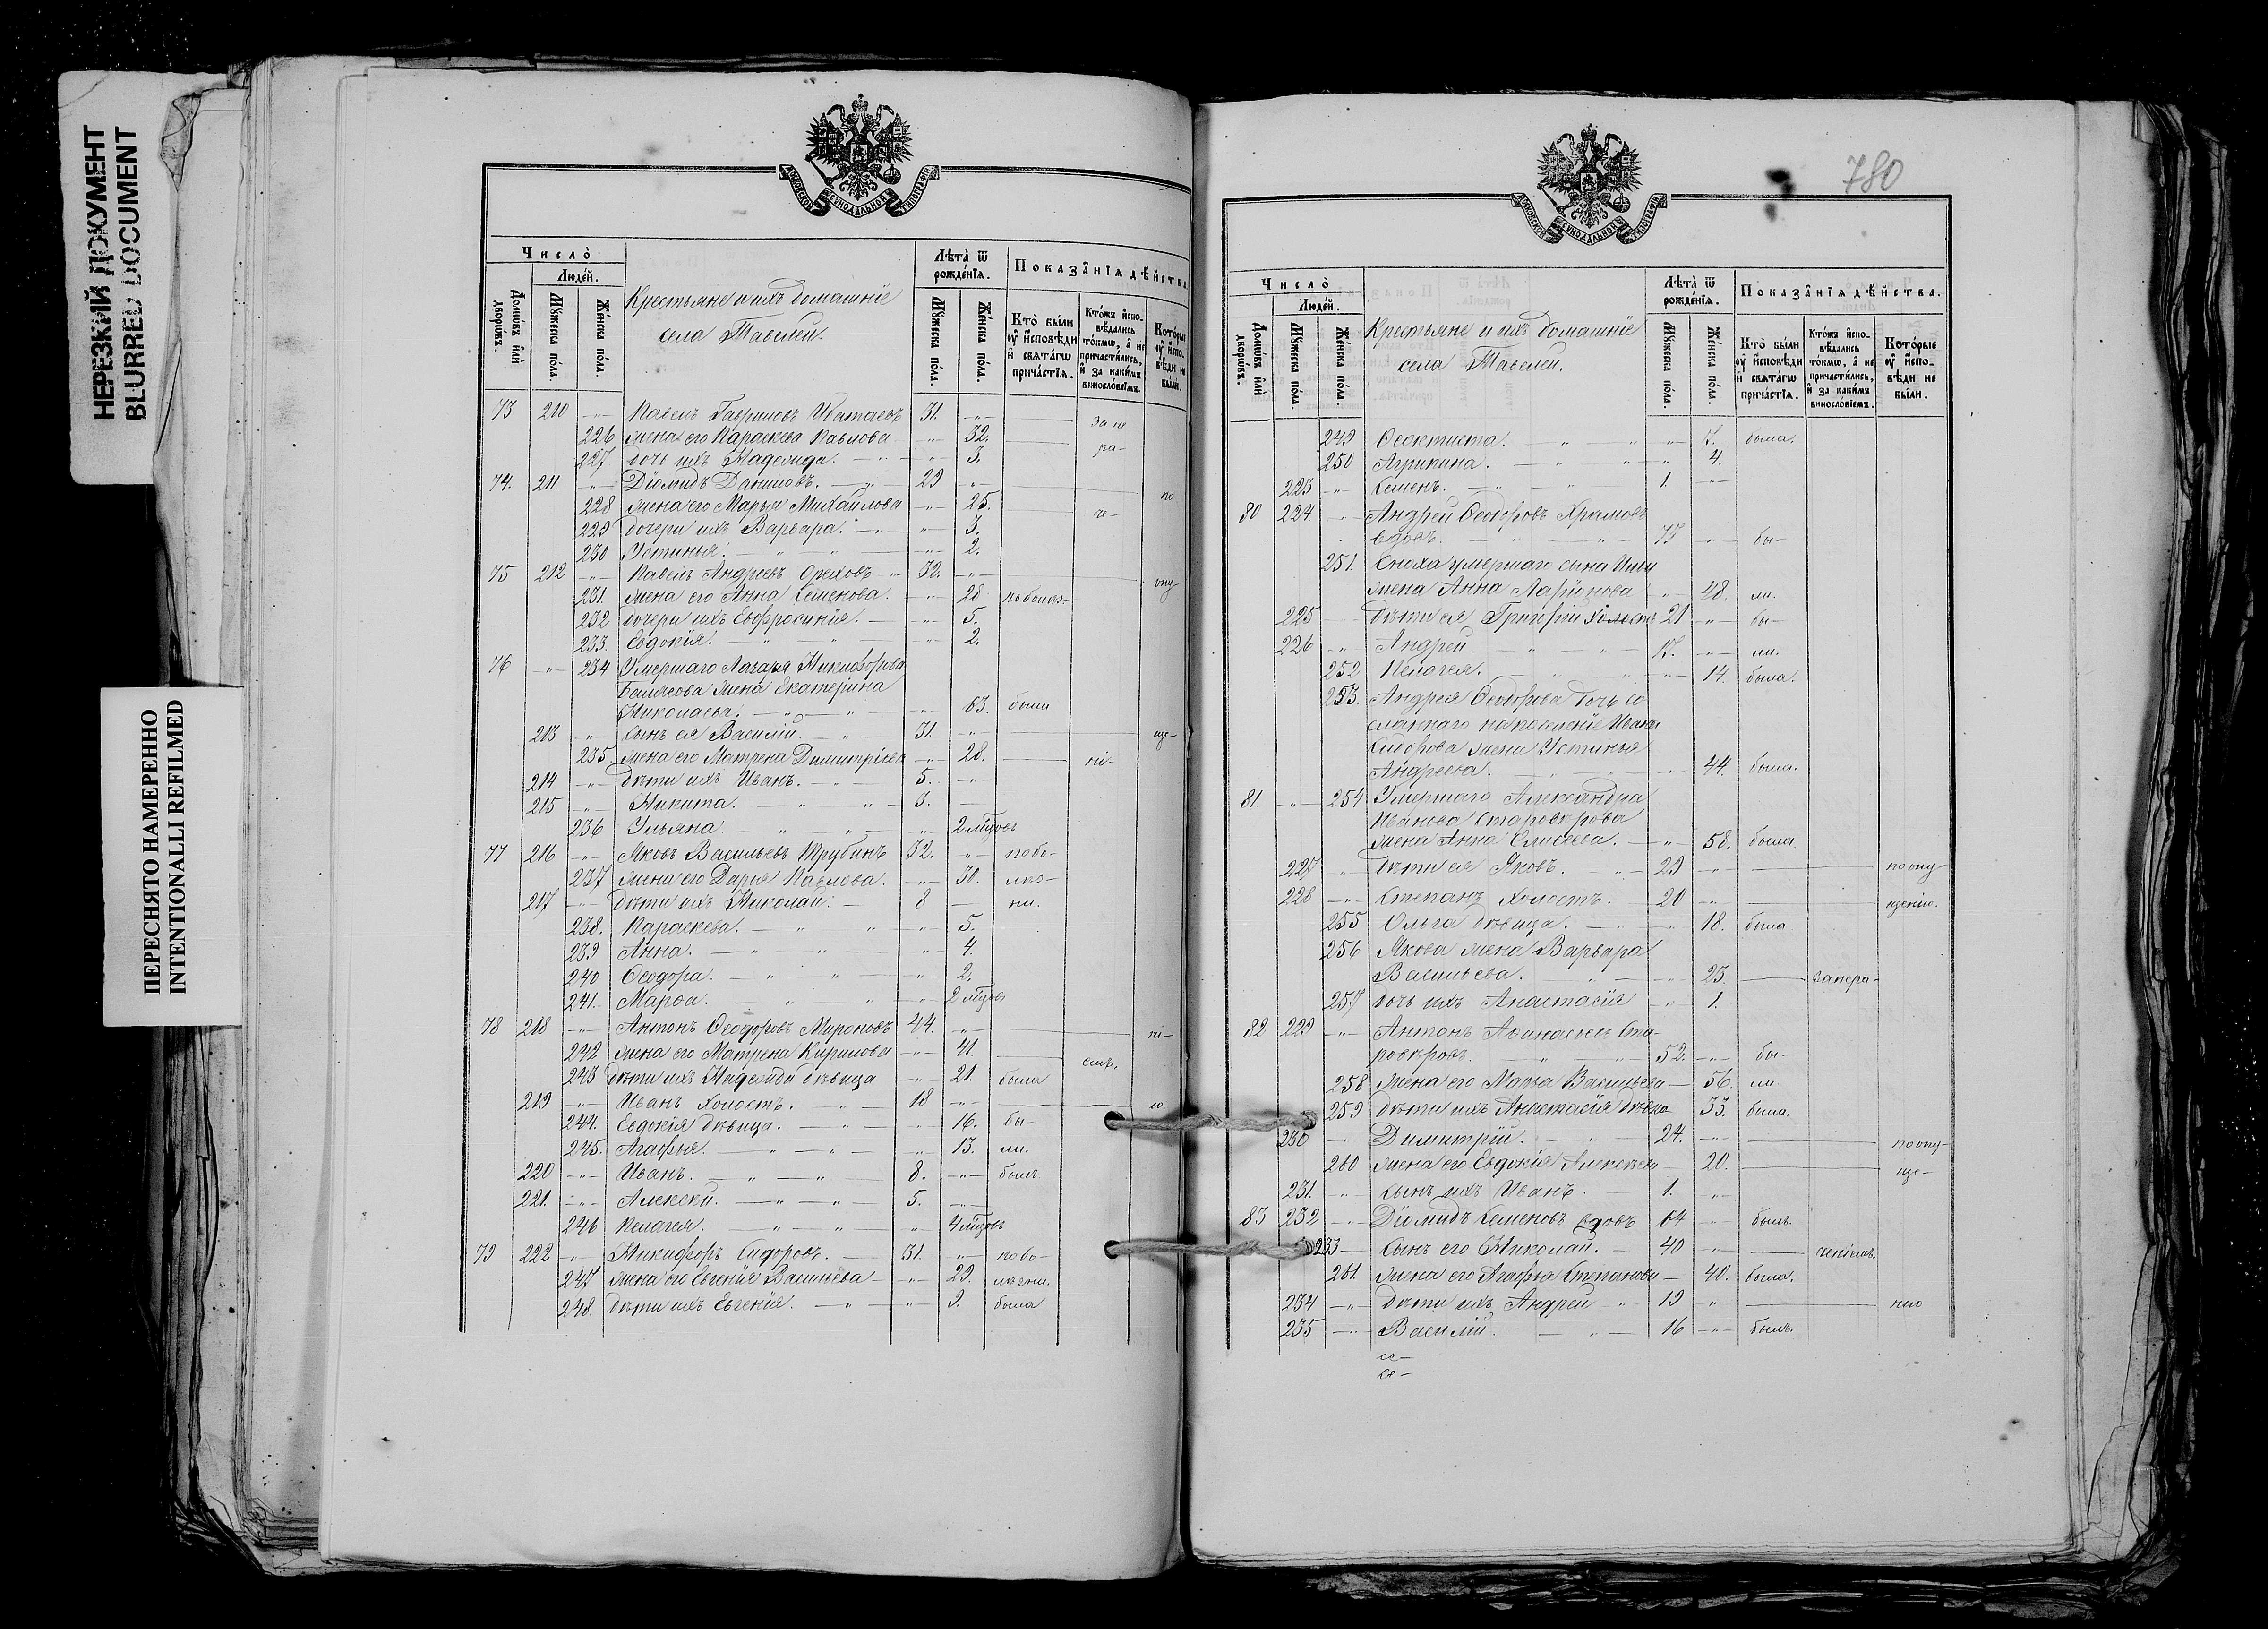 НЕРЕЗКИЙ ДОКУМЕНТ
BLURRED DOCUMENT
ПЕРЕСНЯТО НАМЕРЕННО
INTENTIONALLI REFILMED
МОСКОВСКОЙ СѴНОДАЛЬНОЙ ТИПОГРАФІИ
Число̀
Людей.
Домѡвъ или дворѡвъ.
Мꙋжеска пола.
Женска пола.
Крестьяне и ихъ домашніе
села Тавели.
Лѣта̀ ѿ рожденїя.
Мꙋжеска пола.
Женска пола.
Показанїя дѣйства.
Кто̀ были оу҆ и҆сповѣди и҆ свѧтагѡ причастїя.
Ктожъ и҆сповѣдались токмѡ, а҆ не причастились, и҆ за какимъ винословїемъ.
Которые оу҆ и҆сповѣди не были.
73 210 -"- Павелъ Гавриловъ Игнатьевъ 31. -"-
226 жена его Параскева Павлова -"- 32. за не
227 дочь ихъ Надежда. -"- 3. ра-
74. 211. -"- Діомидъ Даниловъ. 29 -"- по
228 жена его Марья Михайлова -"- 25. че-
229 дочери ихъ Варвара. -"- 3.
230 Устинья. -"- 2.
75 212 -"- Павелъ Андреевъ Ореховъ 32. -"- опу
231. жена его Анна Семенова. -"- 28 по болѣз-
232 дочери ихъ Евфросинія. -"- 5.
233. Евдокія. -"- 2.
76 -"- 234 Умершаго Лазаря Никифорова
жена Екатерина
Николаева. -"- 63. была
213 -"- сынъ ея Василій. 31. -"- ще-
235. жена его Матрена Димитріева -"- 28. ні-
214 -"- дѣти ихъ Иванъ. 5. -"-
215 -"- Никита. 3. -"-
236 Ульяна. -"- 2 мѣсов
77 216 -"- Яковъ Васильевъ Трубинъ 32. -"- по бо-
237 жена его Дарья Павлова. -"- 31. лѣз-
217 -"- дѣти ихъ Николай. 8 — ни.
238. Параскева. -"- 5.
239 Анна. -"- 4.
240 Ѳеодора. -"- 2.
241. Марѳа. -"- 2 мѣсов
78 218 -"- Антонъ Ѳеодоровъ Мироновъ 44. -"- ні-
242 жена его Матрена Кирилова -"- 41. емъ.
243 дѣти ихъ Надежда дѣвица -"- 21. была
219 -"- Иванъ холостъ. 18 -"- ю.
244. Евдокія дѣвица. -"- 16. бы-
245. Агафья. -"- 13. ли.
220 -"- Иванъ. 8. -"- былъ
221. -"- Алексѣй. 5. -"-
246 Пелагея. -"- 4 мѣсов
79 222 -"- Никифоръ Сидоровъ. 31. -"- по бо-
247 жена его Евгенія Васильева -"- 29. лѣзни.
248. дѣти ихъ Евгенія. -"- 9. была
780
МОСКОВСКОЙ СѴНОДАЛЬНОЙ ТИПОГРАФІИ
Число̀
Людей.
Домѡвъ или дворѡвъ.
Мꙋжеска пола.
Женска пола.
Крестьяне и ихъ домашніе
села Тавели.
Лѣта̀ ѿ рожденїя.
Мꙋжеска пола.
Женска пола.
Показанїя дѣйства.
Кто̀ были оу҆ и҆сповѣди и҆ свѧтагѡ причастїя.
Ктожъ и҆сповѣдались токмѡ, а҆ не причастились, и҆ за какимъ винословїемъ.
Которые оу҆ и҆сповѣди не были.
249 Ѳеоктиста. -"- 7. была.
250 Агрипина. -"- 4.
223 -"- Семенъ. 1. -"-
80 224. -"- Андрей Ѳеодоровъ Храмовъ
вдовъ. 77 -"- бы-
251. Сноха умершаго сына Ильи
жена Анна Ларіонова -"- 48. ли.
225 -"- дѣти ея Григорій холостъ 21 -"- бы-
226 -"- Андрей. 17. -"- ли.
252 Пелагея. -"- 14. была.
253. Андрея Ѳеодорова дочь со
сланнаго на поселеніе Ивана
Сидорова жена Устинья
Андреева. -"- 44. была.
81. -"- 254 Умершаго Александра
Иванова Староверова
жена Анна Елисеева. -"- 58. была.
227 -"- дѣти ея Яковъ. 29 -"- по опу
228 -"- Степанъ холостъ. 20 -"- щенію.
255 Ольга дѣвица. -"- 18. была
256 Якова жена Варвара
Васильева. -"- 23. за нера-
257 дочь ихъ Анастасія -"- 1.
82 229 -"- Антонъ Аѳанасьевъ Ста-
роверовъ. 52. -"- бы-
258 жена его Марья Васильева — 56. ли.
259 дѣти ихъ Анастасія дѣвка 33. была.
230 -"- Димитрій. 24. -"- по опу-
260 жена его Евдокія Алексеева — 20. ще-
231. -"- сынъ ихъ Иванъ. 1. -"-
83 232 -"- Діомидъ Семеновъ вдовъ 64 -"- былъ.
233 — сынъ его Николай. 40 -"- ченіемъ.
261. жена его Агафья Степанова — 40. была.
234 -"- дѣти ихъ Андрей 19 " нію
235 -"- Василій. 16 -"- былъ.